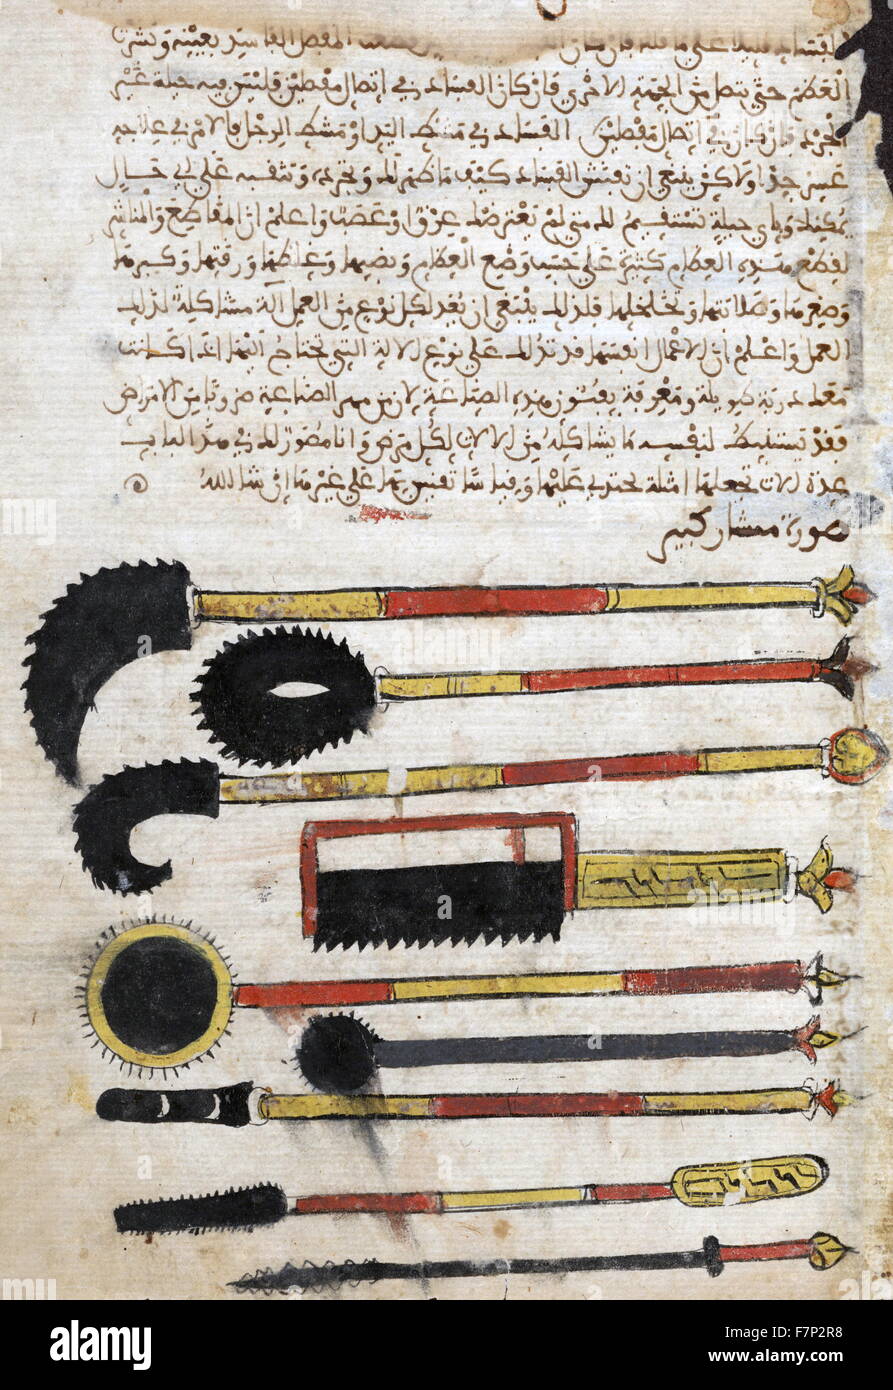 قليلا على ما قلنا فان كان المفصل الفاسد بعينه ونشر
العظم حتى يتصل من الجهة الاخرى فان كان الفساد في اتصال مفصلين فليس فيه حيلة غير
الجرد فان كان في اتصال مفصلين الفساد في مشط اليد او مشط الرجل فالامر في علاجه
عسير جدا ولاكن ينبغي ان تفتش الفساد كيف ما ظهر لك وتجرده وتنقيه على اي حال
يمكنك وباي حيلة تستقيم لك متى لم يعترضك عرق او عصب واعلم ان المقاطع والمناشر
لقطع هذه العظام كثيرة على حسب وضع العظام ونصبها وغلظها ورقتها وكبرها
وصغرها وصلابتها وتخلخلها فلذلك ينبغي ان يعد لكل نوع من العمل آلة مشاكلة لذلك
العمل واعلم ان الاعمال انفسها قد تدلك على نوع الالة التي تحتاج اليها اذا كانت
معك دربة طويلة ومعرفة بفنون هذه الصناعة لان من مهر الصناعة ضروبا من الامراض
فقد يستنبط لنفسه ما يشاكله من الالات لكل مرض وانا مصور لك في هذا الباب
عدة الات تجعلها امثلة تحتذي عليها وقياسا تقيس بها على غيرها ان شا الله
صورة منشار كبير
alamy
alamy
Image ID: F7P2R8
www.alamy.com